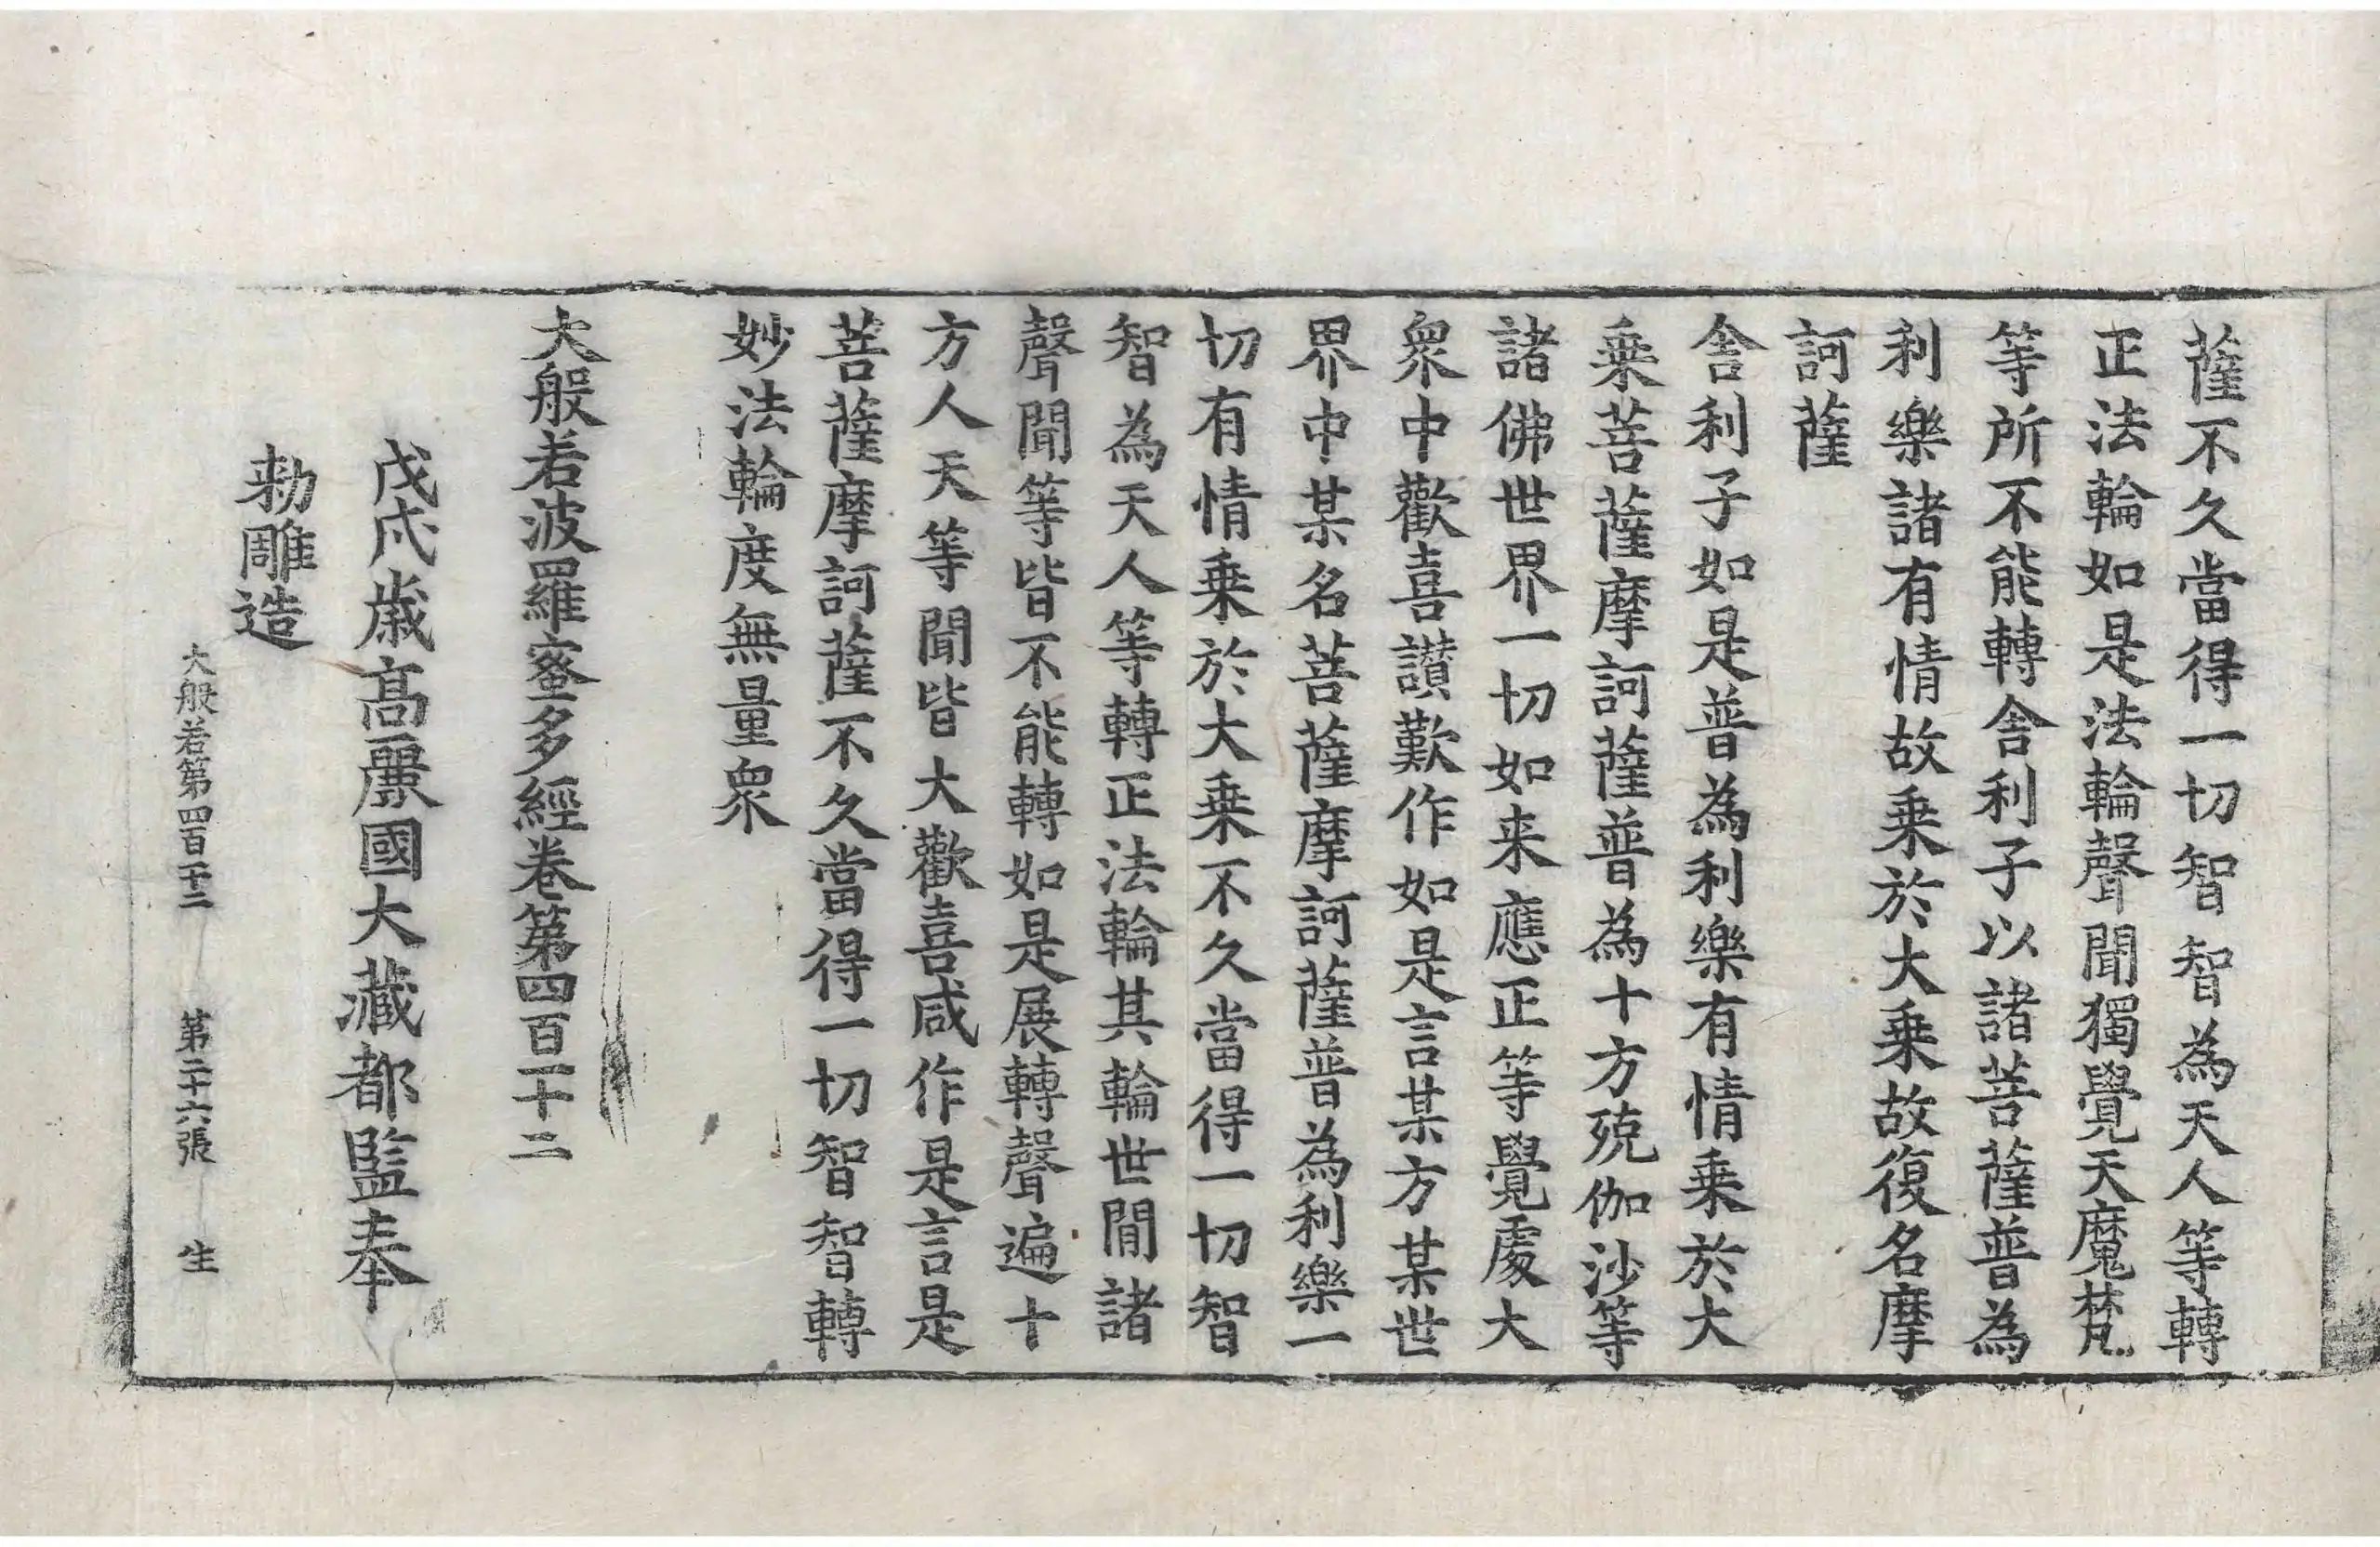 薩不久當得一切智智為天人等轉
正法輪如是法輪聲聞獨覺天魔梵
等所不能轉舍利子以諸菩薩普為
利樂諸有情故乗於大乗故復名摩
訶薩
舍利子如是普為利樂有情乗於大
乗菩薩摩訶薩普為十方殑伽沙等
諸佛世界一切如来應正等覺處大
衆中歡喜讃歎作如是言某方某世
界中某名菩薩摩訶薩普為利樂一
切有情乗於大乗不久當得一切智
智為天人等轉正法輪其輪世間諸
聲聞等皆不能轉如是展轉聲遍十
方人天等聞皆大歡喜咸作是言是
菩薩摩訶薩不久當得一切智智轉
妙法輪度無量衆
大般若波羅蜜多經卷第四百一十二
戊戌歲高麗國大藏都監奉
勅雕造
大般若第四百一十二 第二十六張 生